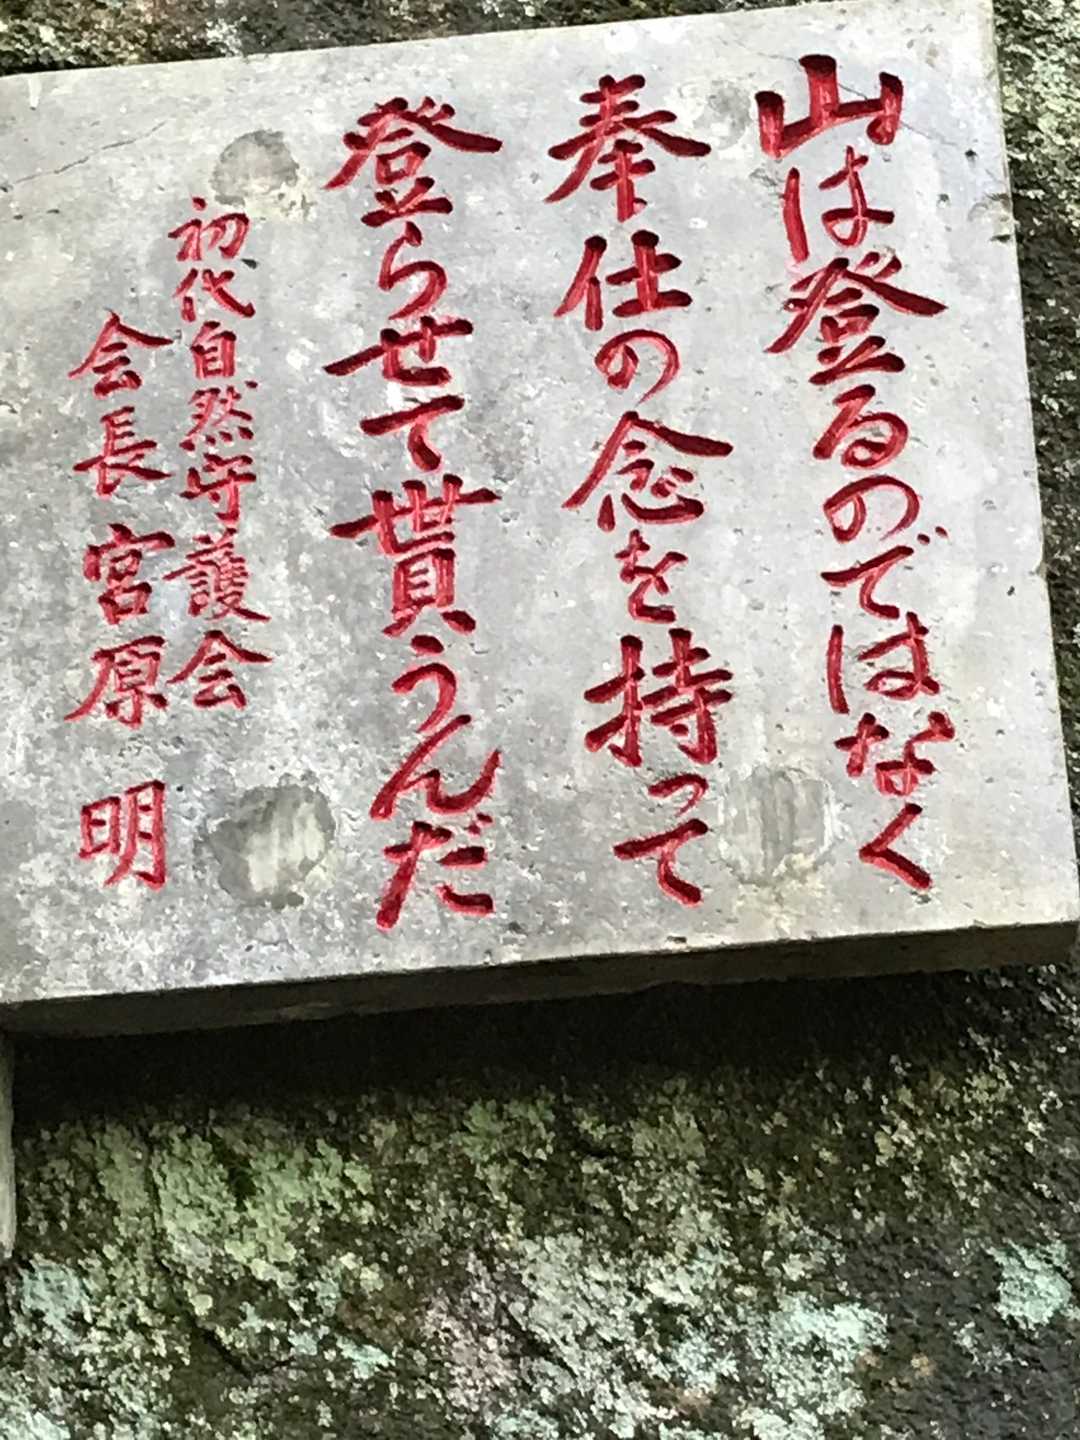 山は登るのではなく
奉仕の念を持って
登らせて貰うんだ
初代自然守護会
会長 宮原 明